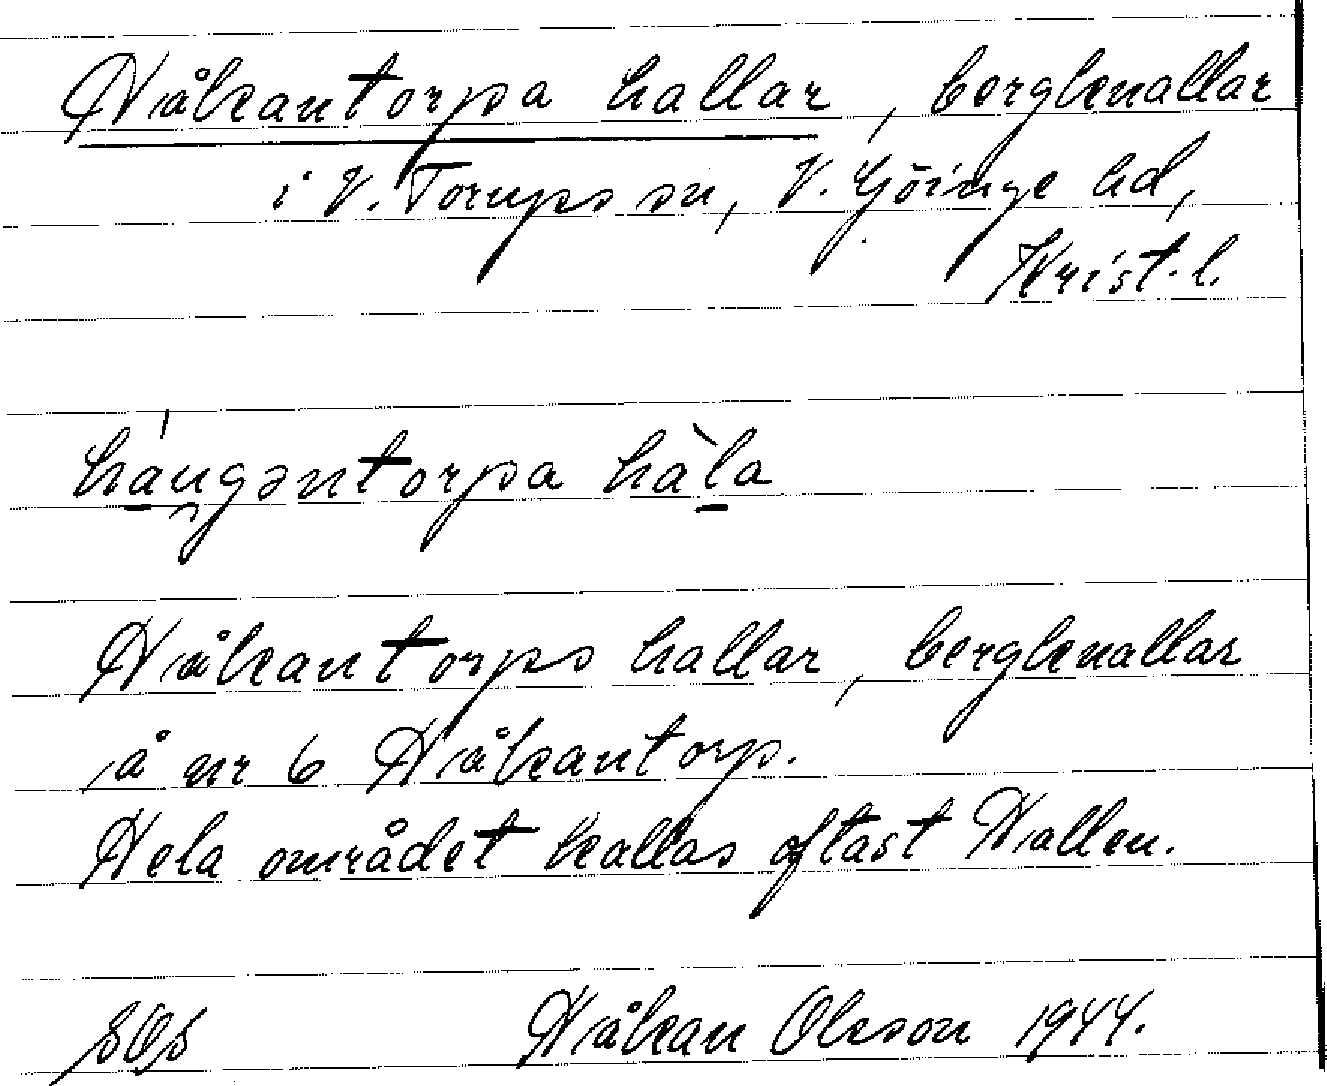 Håkantorpa hallar, bergknallar
i V. Torups sn, V. Göinge hd,
Krist. l.
hángəntorpa hàla
Håkantorps hallar, bergknallar
å nr 6 Håkantorp.
Hela området kallas oftast Hallen.
SOS Håkan Olsson 1944.